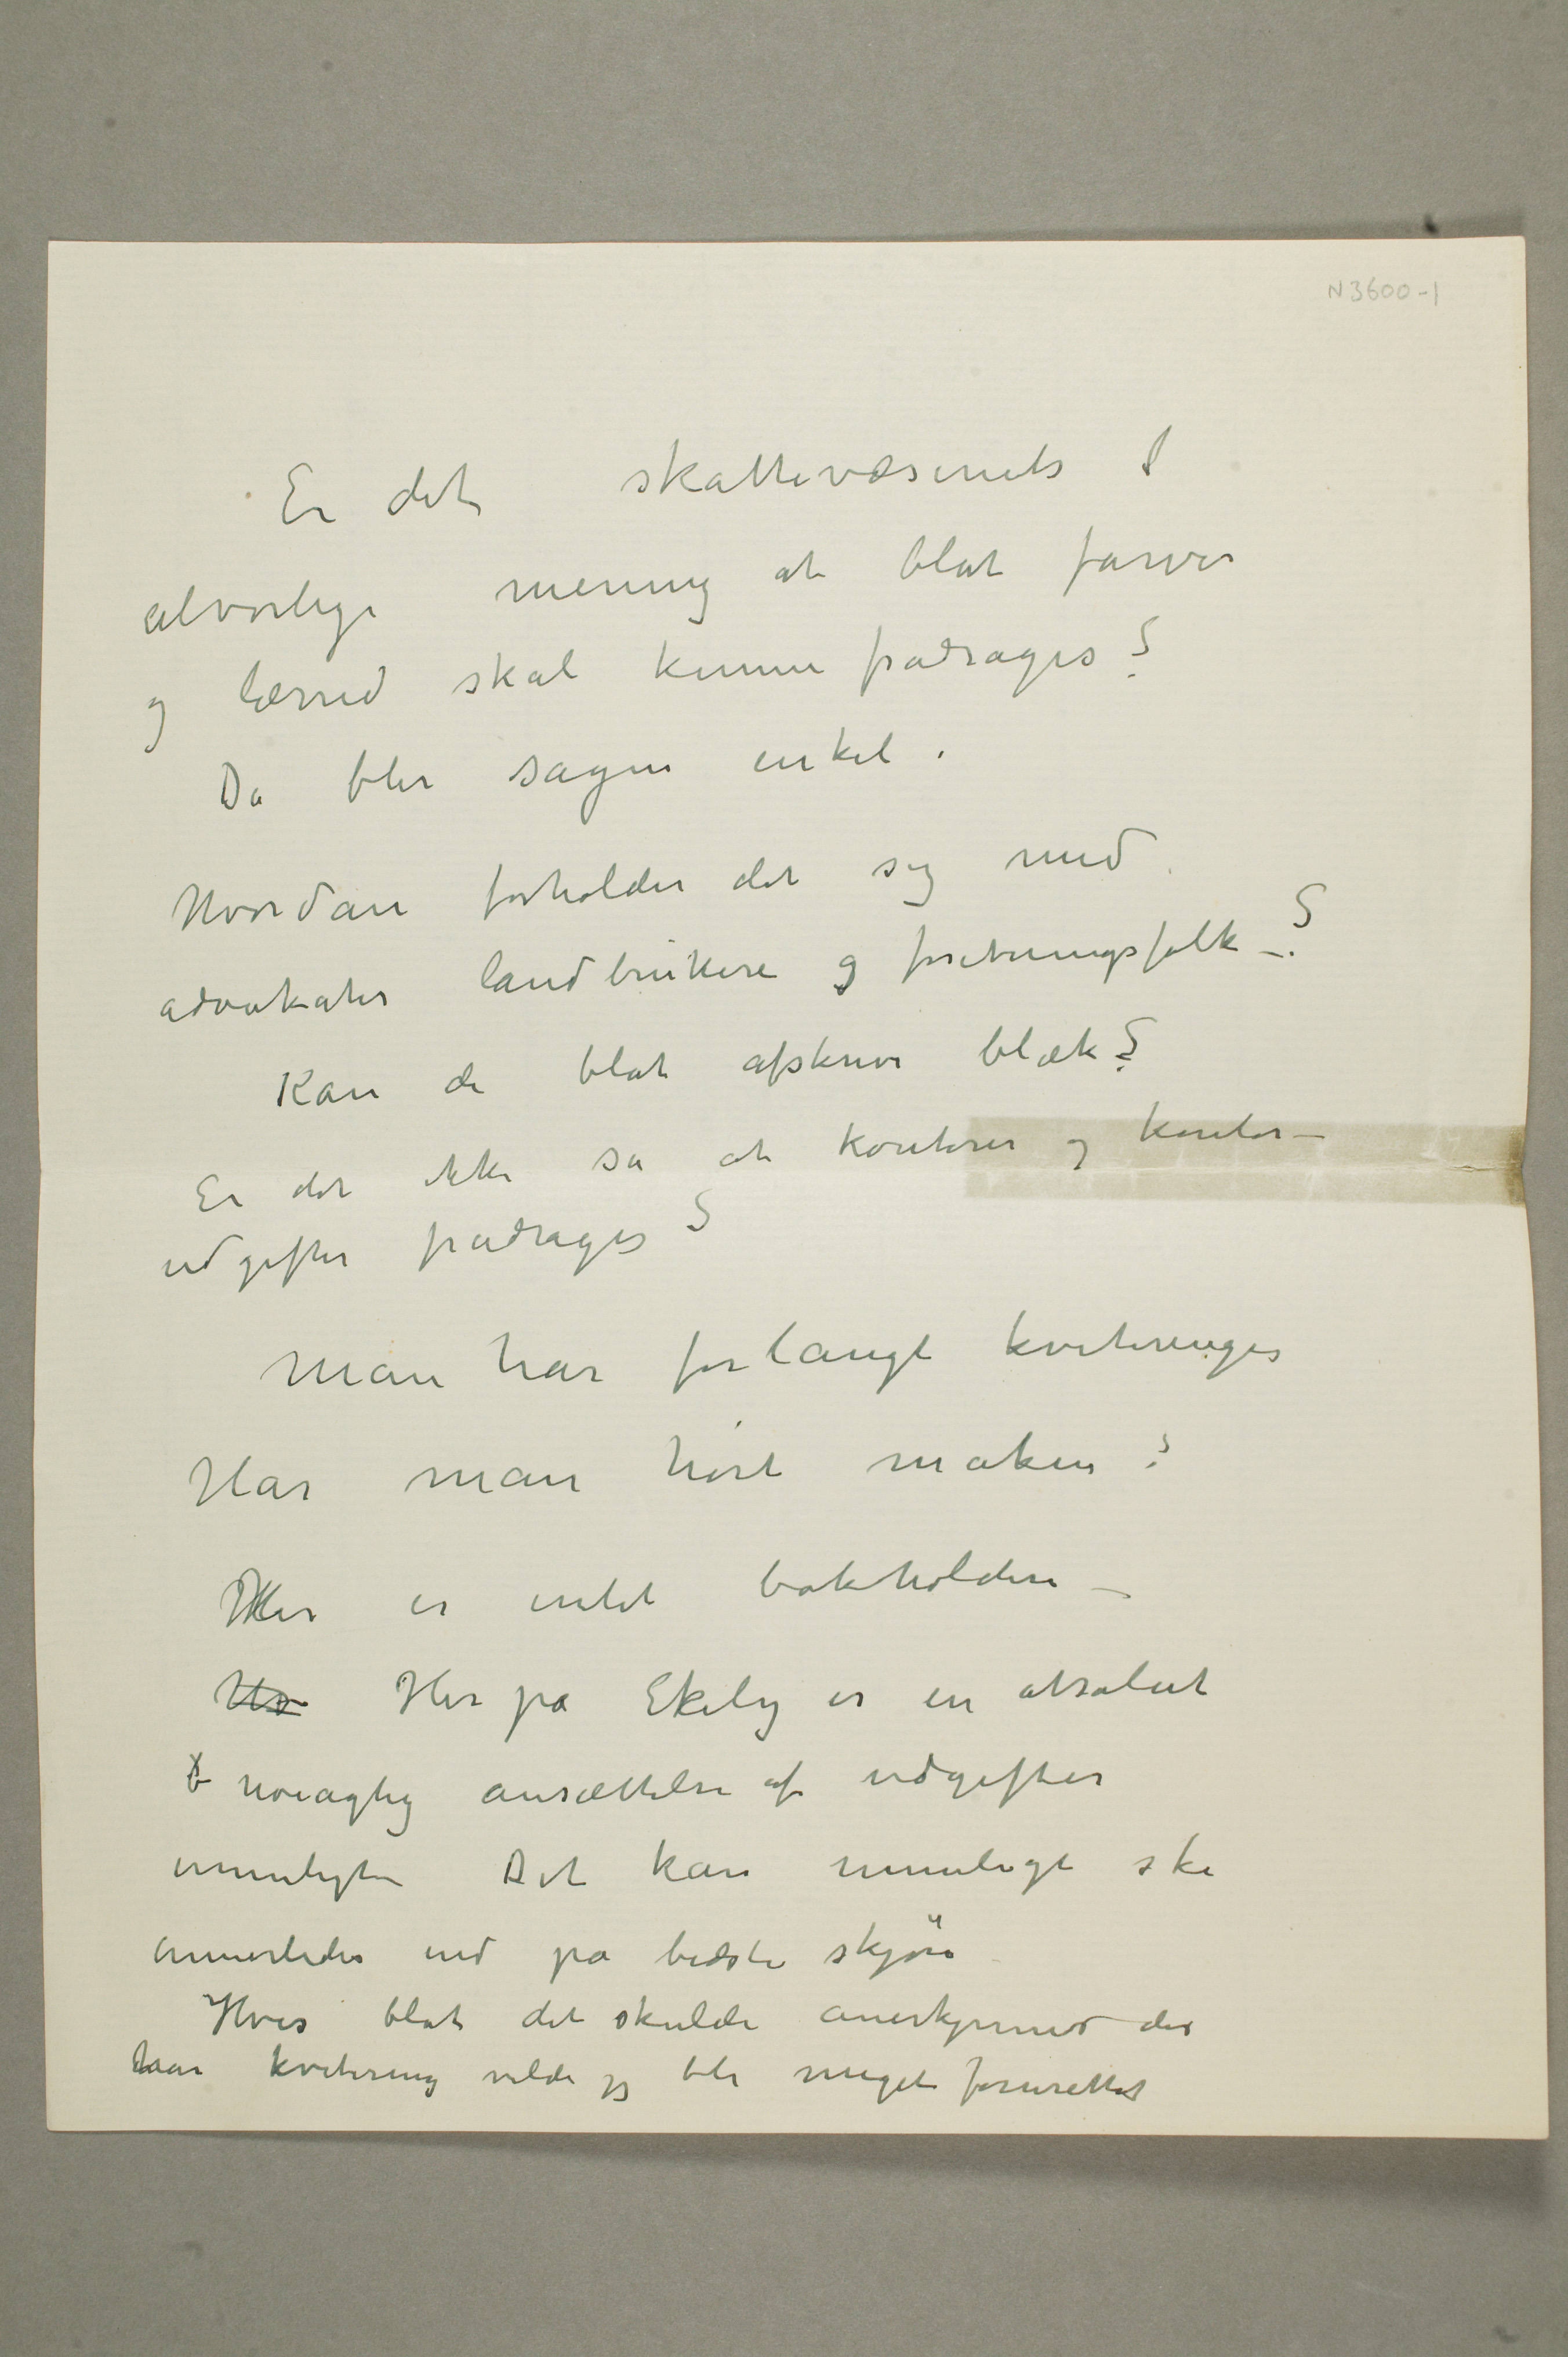 N 3600-1
Er det skattevæsenets
alvorlige mening at blot farver
og lærred skal kunne fradrages?
Da blir sagen enkel.
Hvordan forholder det sig med
advokater landbrukere og foretningsfolk –?
Kan de blot afskrive blæk?
Er det ikke så at kontorer og kontor–
udgifter fradrages?
Man har forlangt kviteringer
Har man hört maken?
Her er intet bokholderi –
Her på Ekely er en absolut
nöiagtig ansættelse af udgifter
umuligt – Det kan umuligt ske
annerledes end på bedste skjön
Hvis blot det skulde anerkjennes der
har kvitering vilde jeg bli meget forurettet